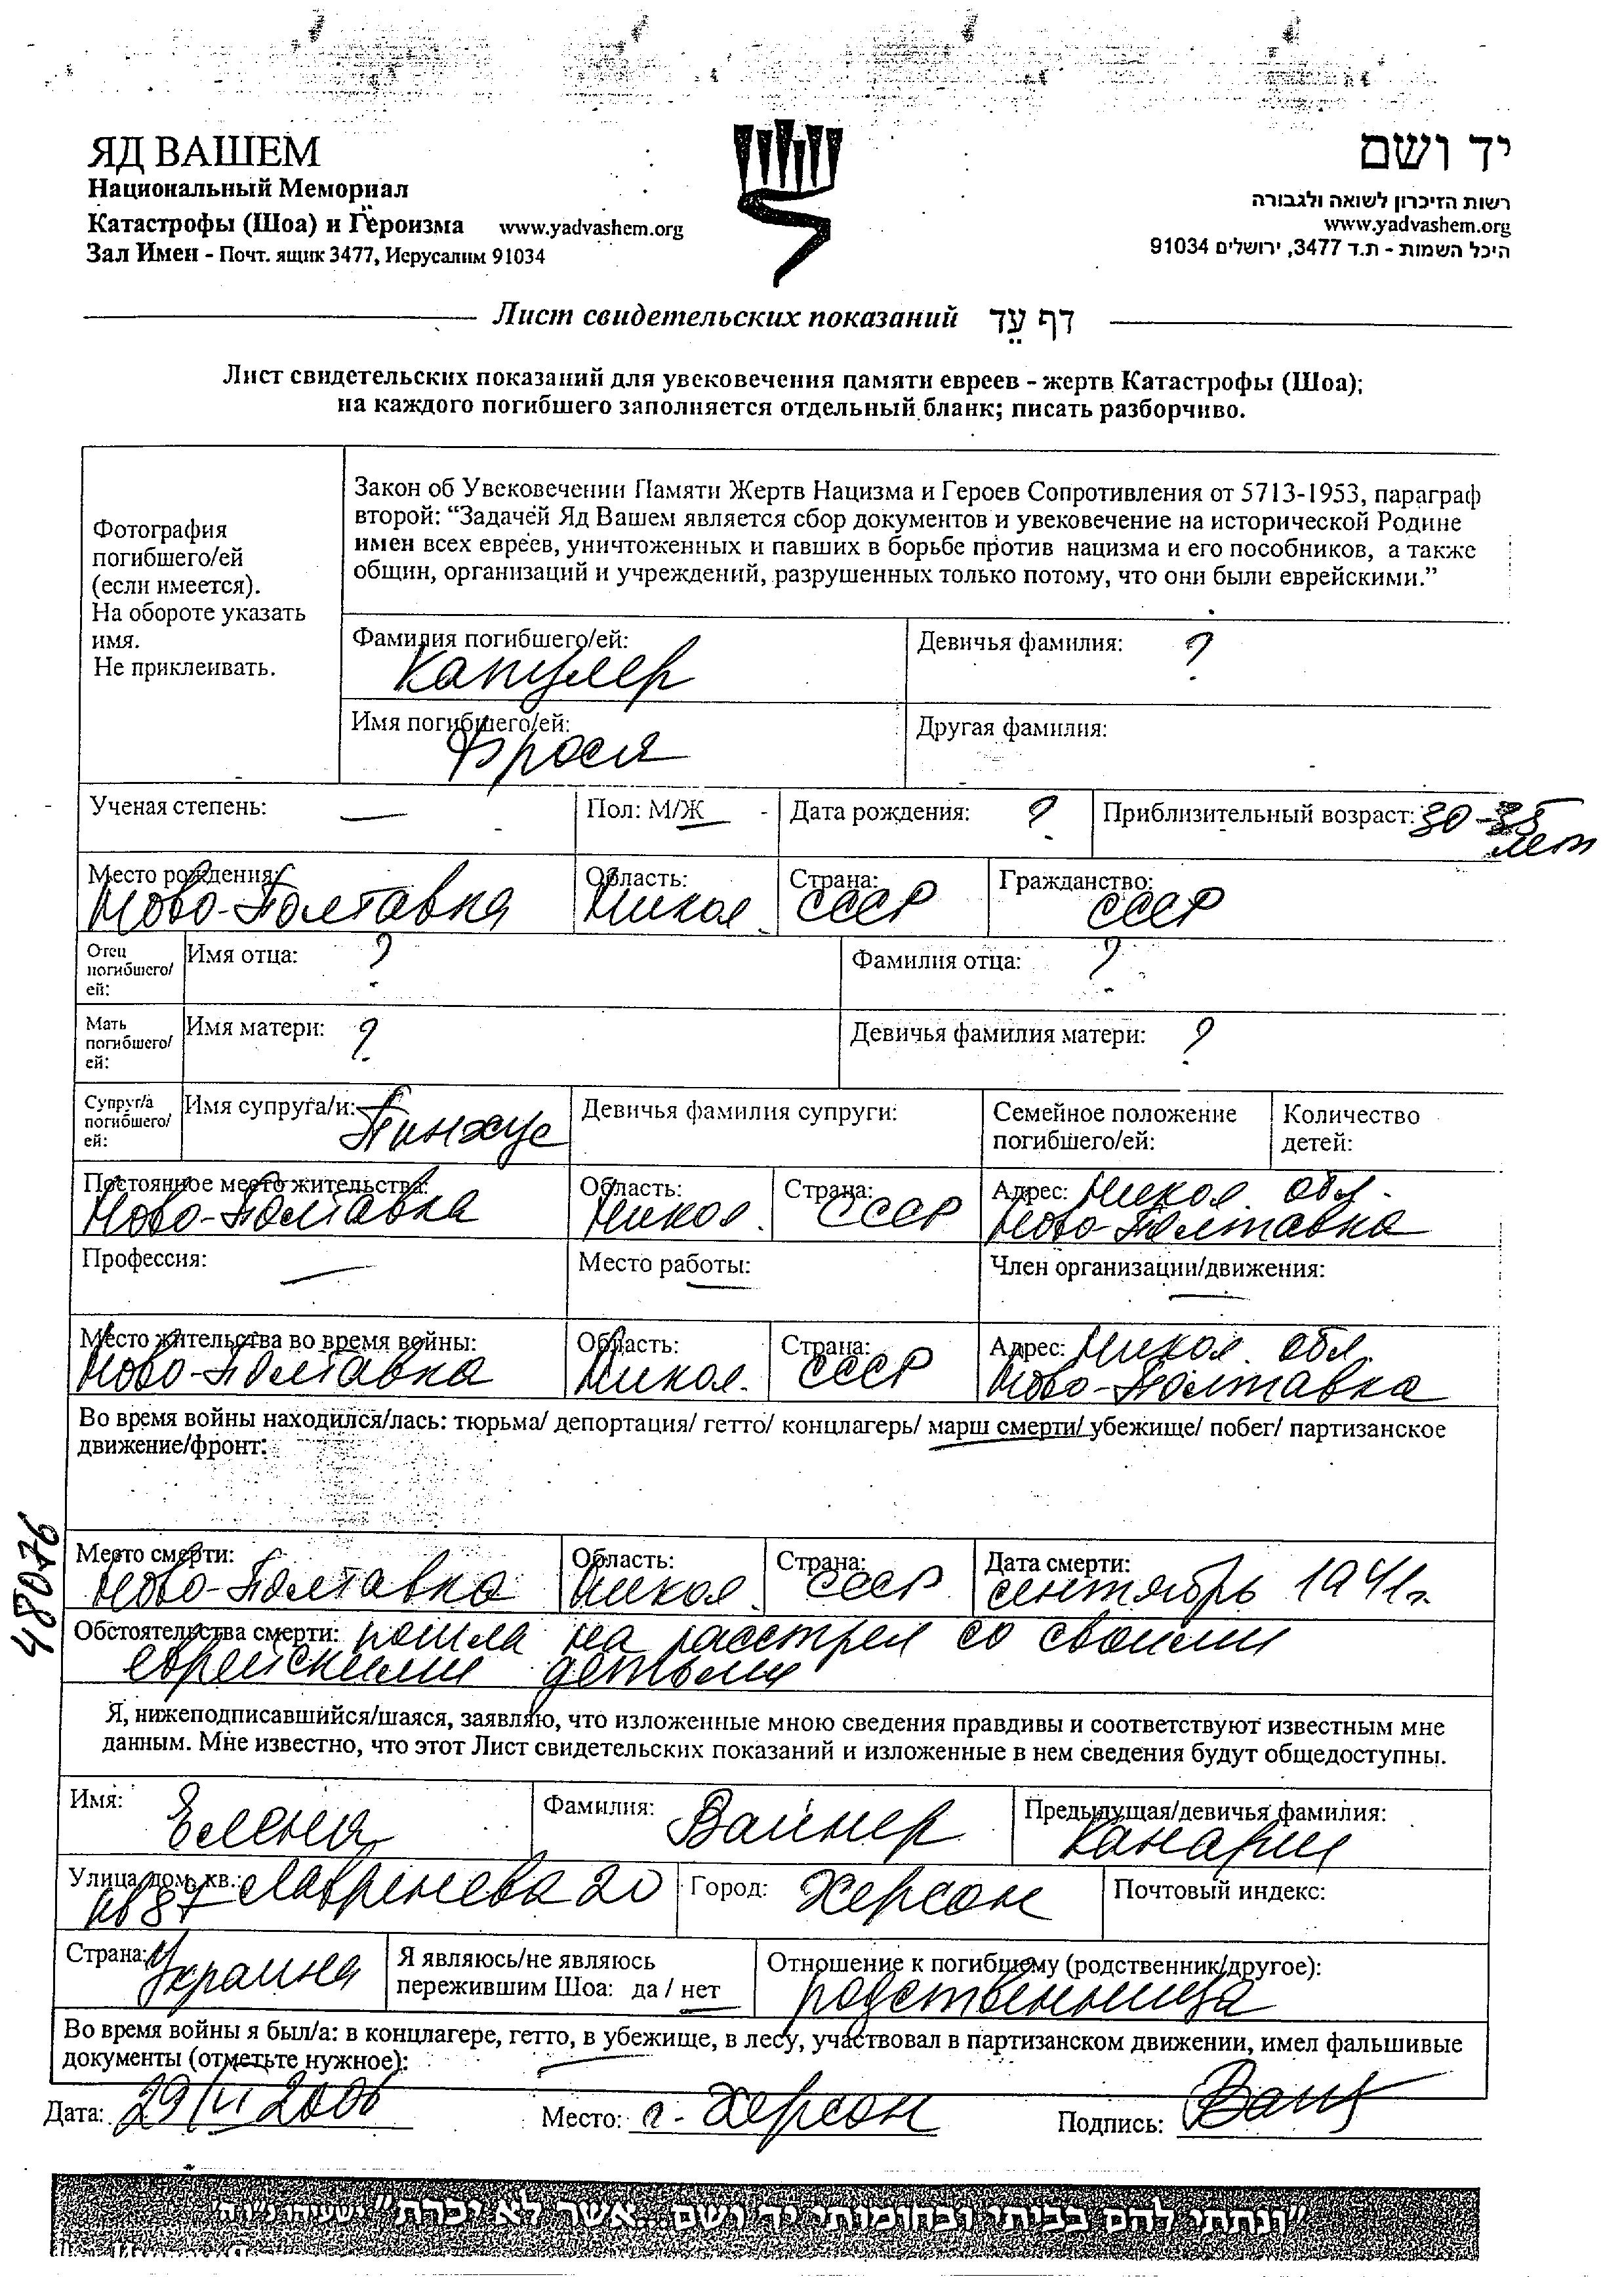 ЯД ВАШЕМ
Национальный Мемориал
Катастрофы (Шоа) и Героизма www.yadvashem.org
Зал Имен - Почт. ящик 3477, Иерусалим 91034
יד ושם
רשות הזיכרון לשואה ולגבורה
www.yadvashem.org
היכל השמות - ת.ד 3477, ירושלים 91034
Лист свидетельских показаний דף עֵד
Лист свидетельских показаний для увековечения памяти евреев - жертв Катастрофы (Шоа);
на каждого погибшего заполняется отдельный бланк; писать разборчиво.
Фотография
погибшего/ей
(если имеется).
На обороте указать
имя.
Не приклеивать.
Закон об Увековечении Памяти Жертв Нацизма и Героев Сопротивления от 5713-1953, параграф
второй: “Задачей Яд Вашем является сбор документов и увековечение на исторической Родине
имен всех евреев, уничтоженных и павших в борьбе против нацизма и его пособников, а также
общин, организаций и учреждений, разрушенных только потому, что они были еврейскими.”
Фамилия погибшего/ей: Девичья фамилия: ?
Капулер
Имя погибшего/ей: Другая фамилия:
Фрося
Ученая степень: — Пол: М/Ж Дата рождения: ? Приблизительный возраст: 30-35
лет
Место рождения: Область: Страна: Гражданство:
Ново-Полтавка Никол. СССР СССР
Отец
погибшего/
ей:
Имя отца: ? Фамилия отца: ?
Мать
погибшего/
ей:
Имя матери: ? Девичья фамилия матери: ?
Супруг/а
погибшего/
ей:
Имя супруга/и: Пинхус
Девичья фамилия супруги:
Семейное положение
погибшего/ей:
Количество
детей:
Постоянное место жительства: Область: Страна: Адрес: Никол. обл.
Ново-Полтавка Никол. СССР Ново-Полтавка
Профессия: — Место работы: — Член организации/движения: —
Место жительства во время войны: Область: Страна: Адрес: Никол. обл.
Ново-Полтавка Никол. СССР Ново-Полтавка
Во время войны находился/лась: тюрьма/ депортация/ гетто/ концлагерь/ марш смерти/ убежище/ побег/ партизанское
движение/фронт:
48076
Место смерти: Область: Страна: Дата смерти:
Ново-Полтавка Никол. СССР сентябрь 1941г.
Обстоятельства смерти: пошла на расстрел со своими
еврейскими детьми
Я, нижеподписавшийся/шаяся, заявляю, что изложенные мною сведения правдивы и соответствуют известным мне
данным. Мне известно, что этот Лист свидетельских показаний и изложенные в нем сведения будут общедоступны.
Имя: Елена Фамилия: Вайнер Предыдущая/девичья фамилия:
Канарш
Улица, дом, кв.: Лавренева 20 Город: Херсон Почтовый индекс:
кв 87
Страна: Украина
Я являюсь/не являюсь
пережившим Шоа: да / нет
Отношение к погибшему (родственник/другое):
родственница
Во время войны я был/а: в концлагере, гетто, в убежище, в лесу, участвовал в партизанском движении, имел фальшивые
документы (отметьте нужное): —
Дата: 29/VI 2006 Место: г. Херсон Подпись:
"ונתתי להם בביתי ובחומותי יד ושם...אשר לא יכרת" ישעיהו נ"ו ה'